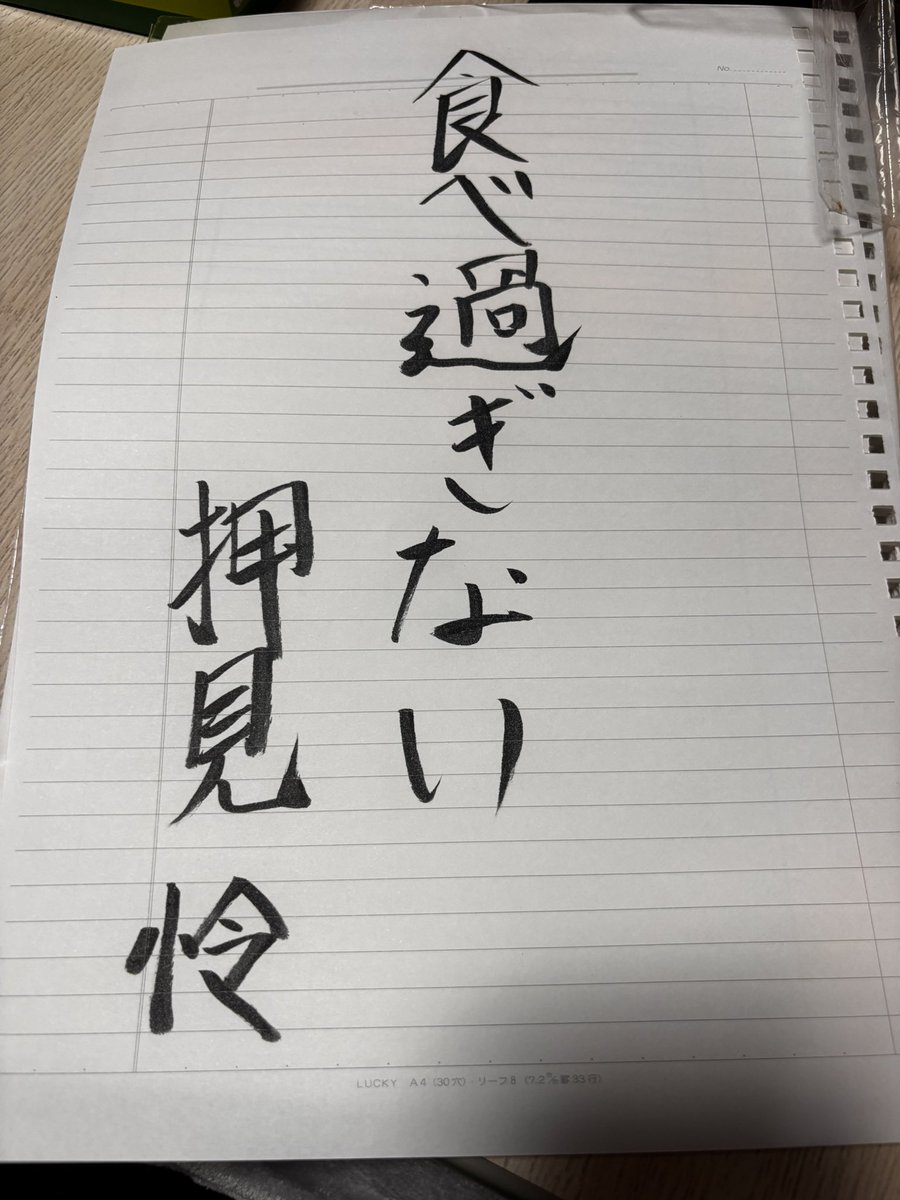 食べ過ぎない
押見 怜
No.
LUCKY A4 (30穴)・リーフB (7.2㍉罫33行)